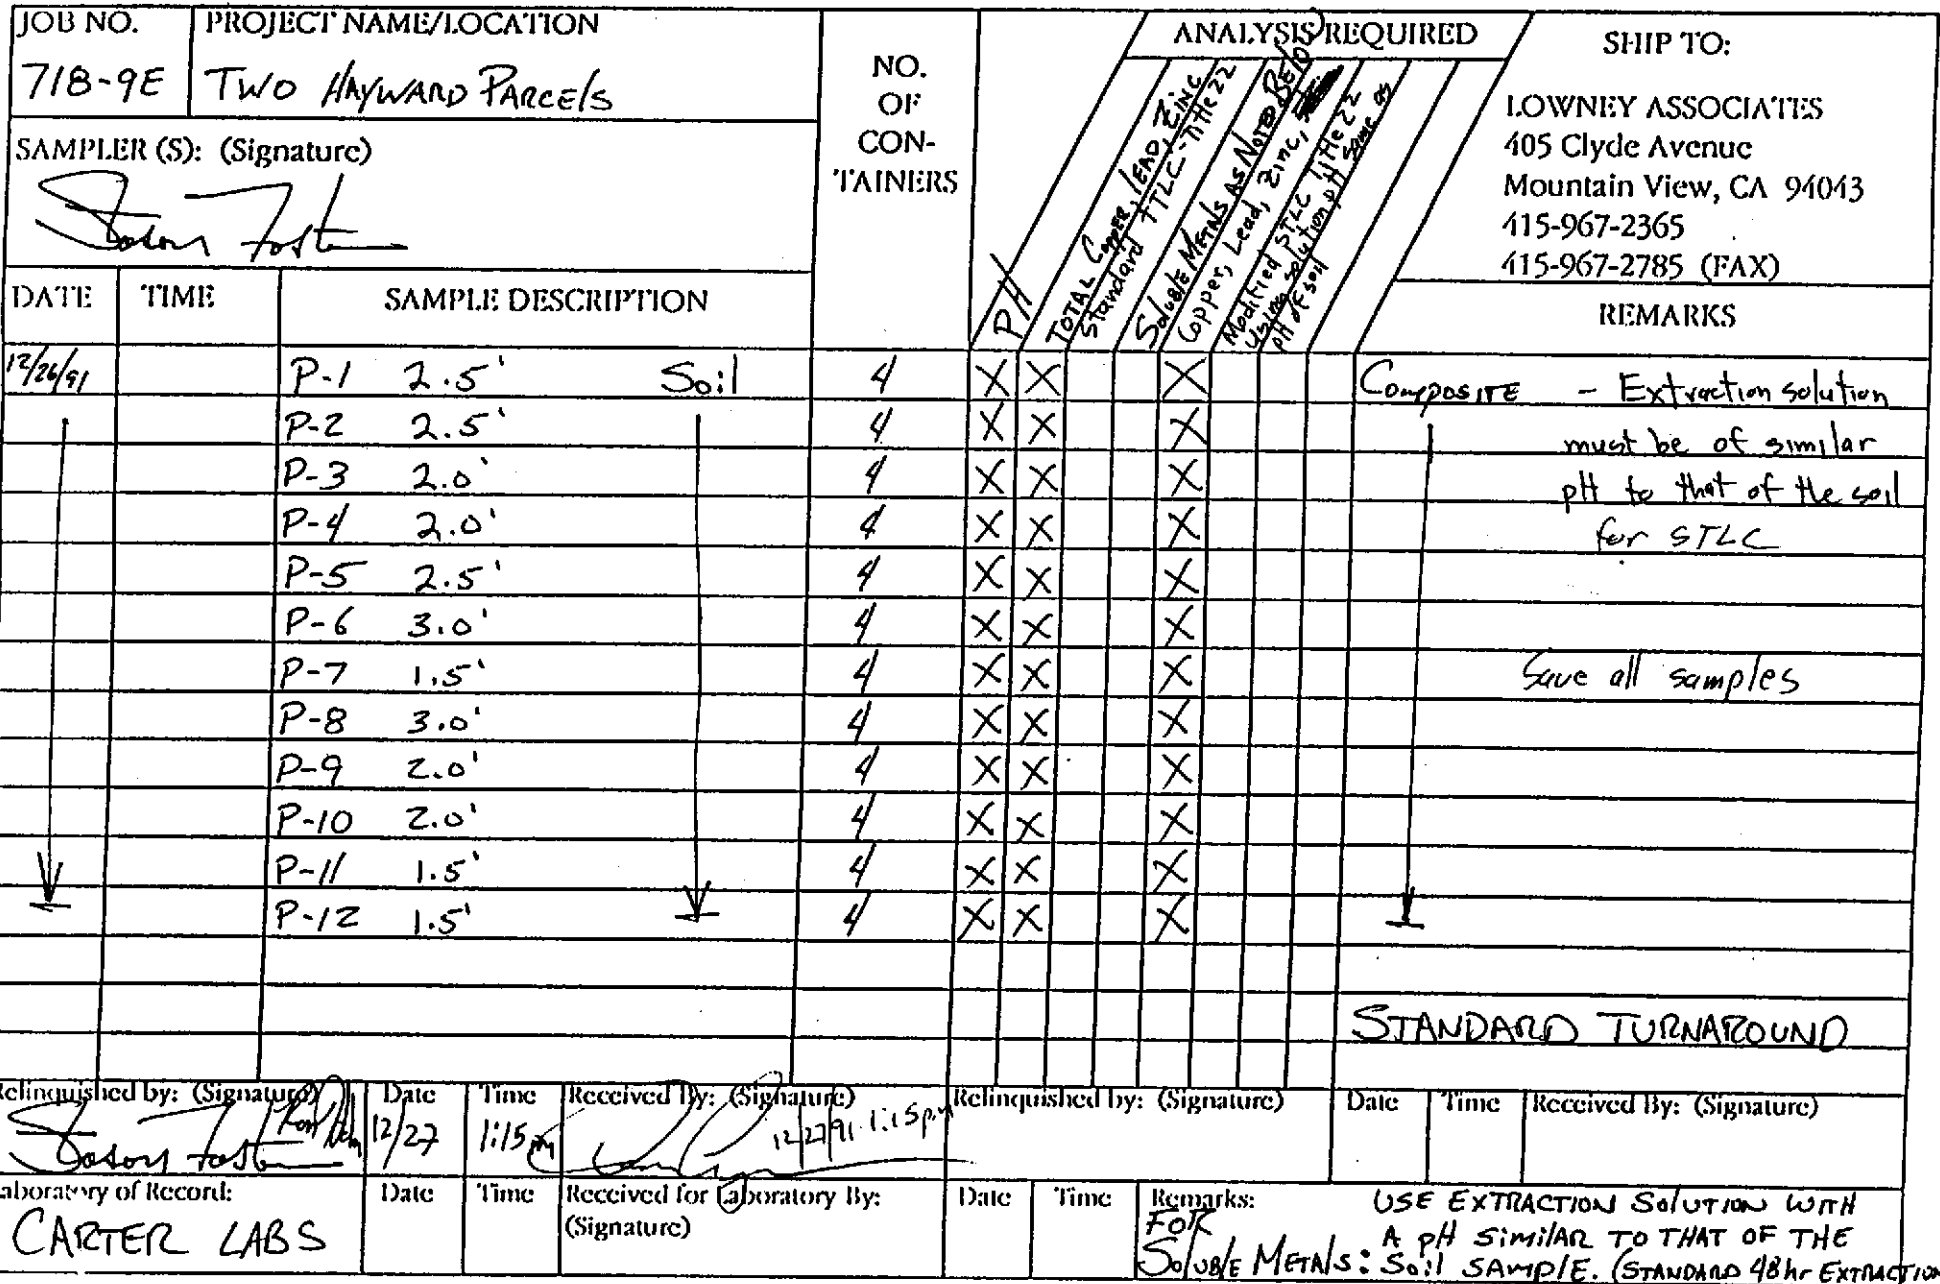 JOB NO.
718-9E
PROJECT NAME/LOCATION
TWO HAYWARD PARCELS
SAMPLER (S): (Signature)
NO.
OF
CON-
TAINERS
ANALYSIS REQUIRED
PH
TOTAL COPPER, LEAD, ZINC
Standard TTLC-Title 22
Soluble METALS AS NOTED BELOW)
Copper, Lead, Zinc,
Modified STLC Title 22
Using solution pH same as
pH of soil
SHIP TO:
LOWNEY ASSOCIATES
405 Clyde Avenue
Mountain View, CA 94043
415-967-2365
415-967-2785 (FAX)
DATE TIME SAMPLE DESCRIPTION REMARKS
12/26/91 P-1 2.5' Soil 4 X X X COMPOSITE - Extraction solution
P-2 2.5' 4 X X X must be of similar
P-3 2.0' 4 X X X pH to that of the soil
P-4 2.0' 4 X X X for STLC
P-5 2.5' 4 X X X
P-6 3.0' 4 X X X
P-7 1.5' 4 X X X Save all samples
P-8 3.0' 4 X X X
P-9 2.0' 4 X X X
P-10 2.0' 4 X X X
P-11 1.5' 4 X X X
P-12 1.5' 4 X X X
STANDARD TURNAROUND
Relinquished by: (Signature)
Date
12/27
Time
1:15 pm
Received By: (Signature)
12/27/91 1:15 p.m
Relinquished by: (Signature)
Date
Time
Received By: (Signature)
Laboratory of Record:
CARTER LABS
Date
Time
Received for Laboratory By:
(Signature)
Date
Time
Remarks: USE EXTRACTION SOLUTION WITH
FOR A pH SIMILAR TO THAT OF THE
SOLUBLE METALS: Soil SAMPLE. (STANDARD 48hr EXTRACTION